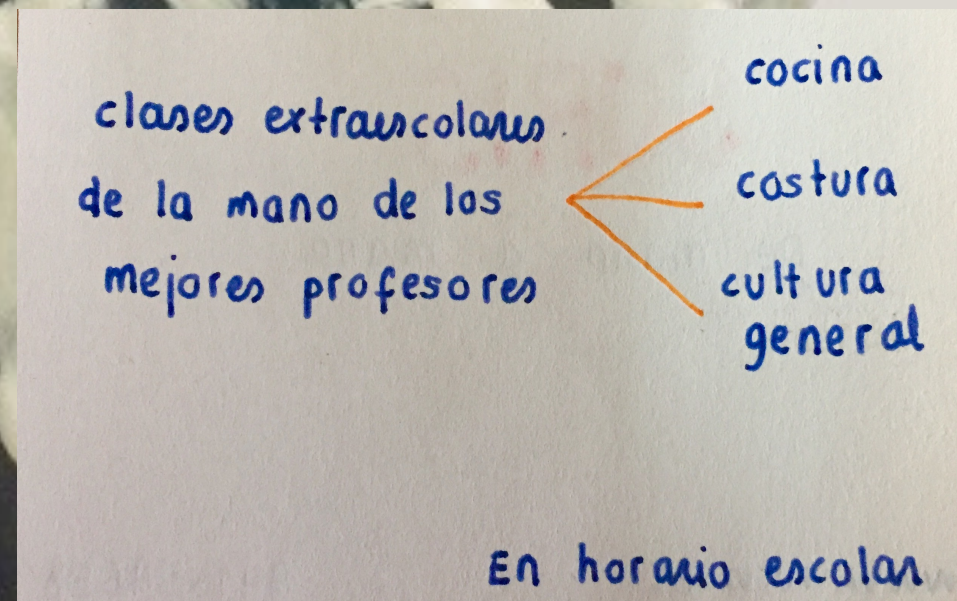 clases extraescolares
de la mano de los
mejores profesores
cocina
costura
cultura
general
En horario escolar